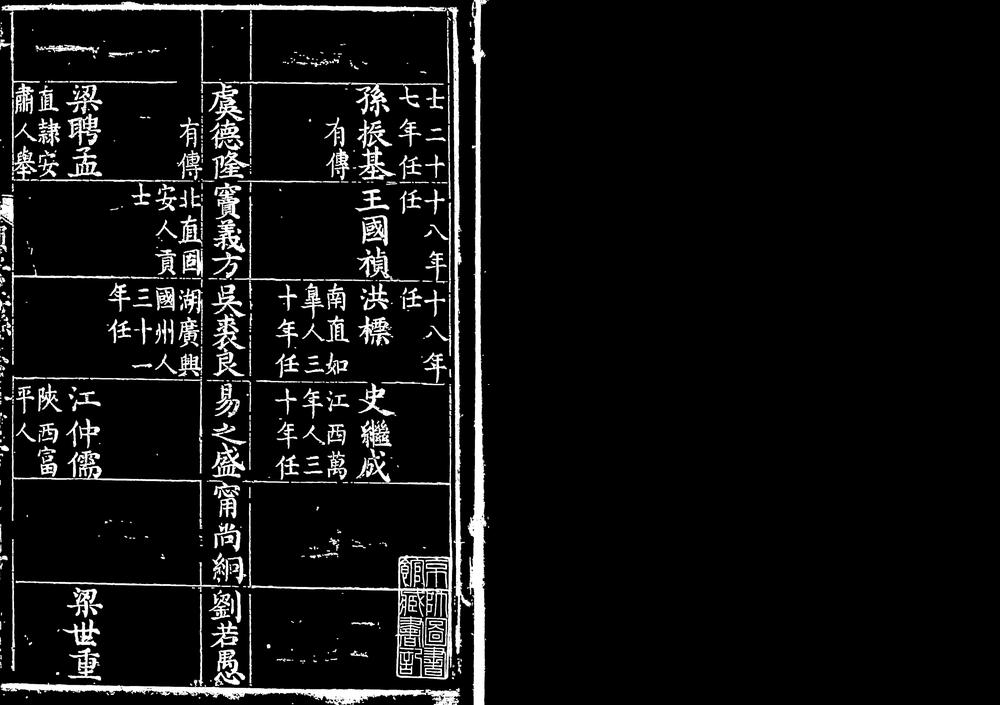 士二十
七年任
孫振基
有傳
十八年
任
王國禎
十八年
任
洪標
南直如
臯人三
十年任
史繼成
江西萬
年人三
十年任
虞德隆
有傳
竇義方
北直固
安人貢
士
吳裘良
湖廣興
國州人
三十一
年任
易之盛
甯尚絅
劉若愚
梁聘孟
直隸安
肅人舉
江仲儒
陝西富
平人
梁世重
京師圖書
館藏書記